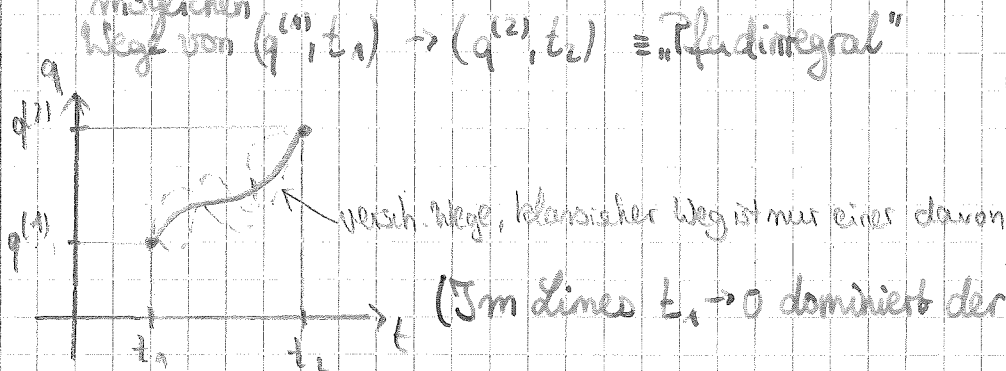 möglichen
Wege von (q⁽¹⁾, t₁) → (q⁽²⁾, t₂) ≡ „Pfadintegral"
q
q⁽²⁾
q⁽¹⁾
versch. Wege, klassischer Weg ist nur einer davon
(Im Limes t₁ → 0 dominiert der
t
t₁
t₂